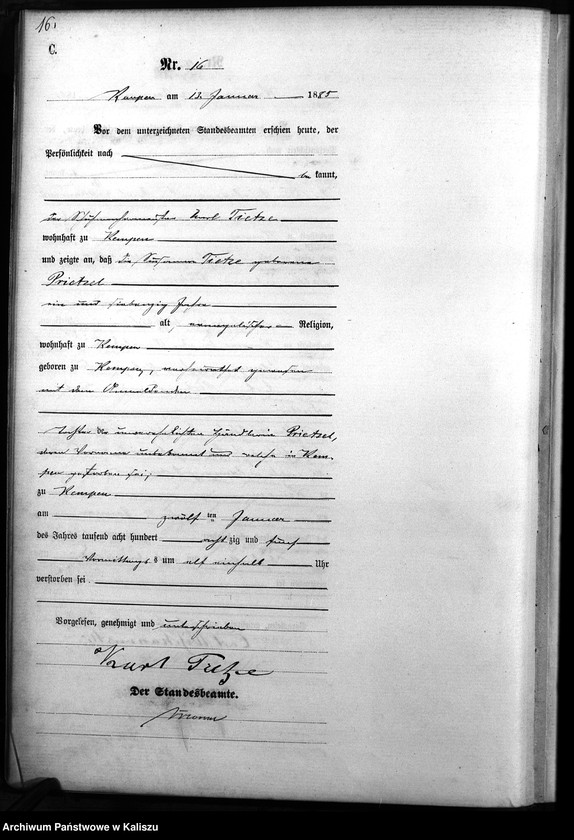 16.
C.
Nr. 16
Kempen am 13. Januar 1885
Vor dem unterzeichneten Standesbeamten erschien heute, der
Persönlichkeit nach
be kannt,
der Karl Tietze
wohnhaft zu Kempen
und zeigte an, daß die Susanna Tietze geborene
Prietzel
ein und siebenzig Jahre
alt, evangelischer Religion,
wohnhaft zu Kempen
geboren zu Kempen, verheirathet gewesen
mit dem Anmeldenden
Tochter der unverehelichten Prietzel,
deren Vorname unbekannt und welche in Kem-
pen gestorben sei,
zu Kempen
am zwölf ten Januar
des Jahres tausend acht hundert acht zig und fünf
Vormittags um elf einhalb Uhr
verstorben sei.
Vorgelesen, genehmigt und unterschrieben
Karl Tietze
Der Standesbeamte.
Archiwum Państwowe w Kaliszu